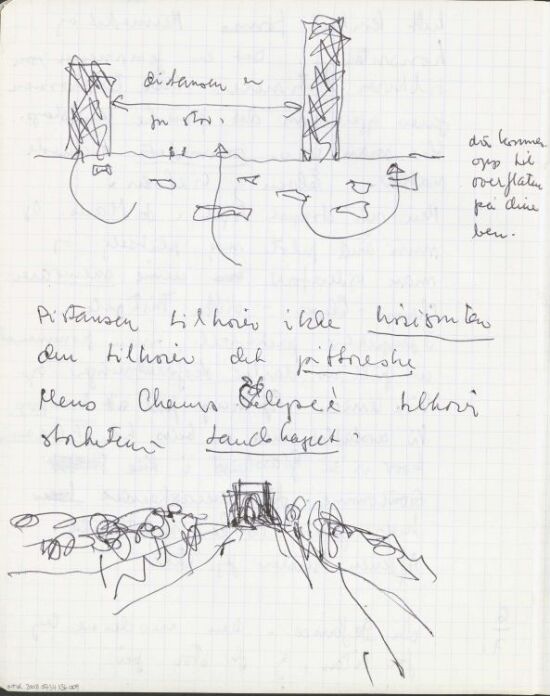 distansen er
for stor.
du kommer
opp til
overflaten
på dine
ben.
Distansen tilhører ikke horisonten
den tilhører det pittoreske
Mens Champs Elysées tilhører
storheten. Landskapet.